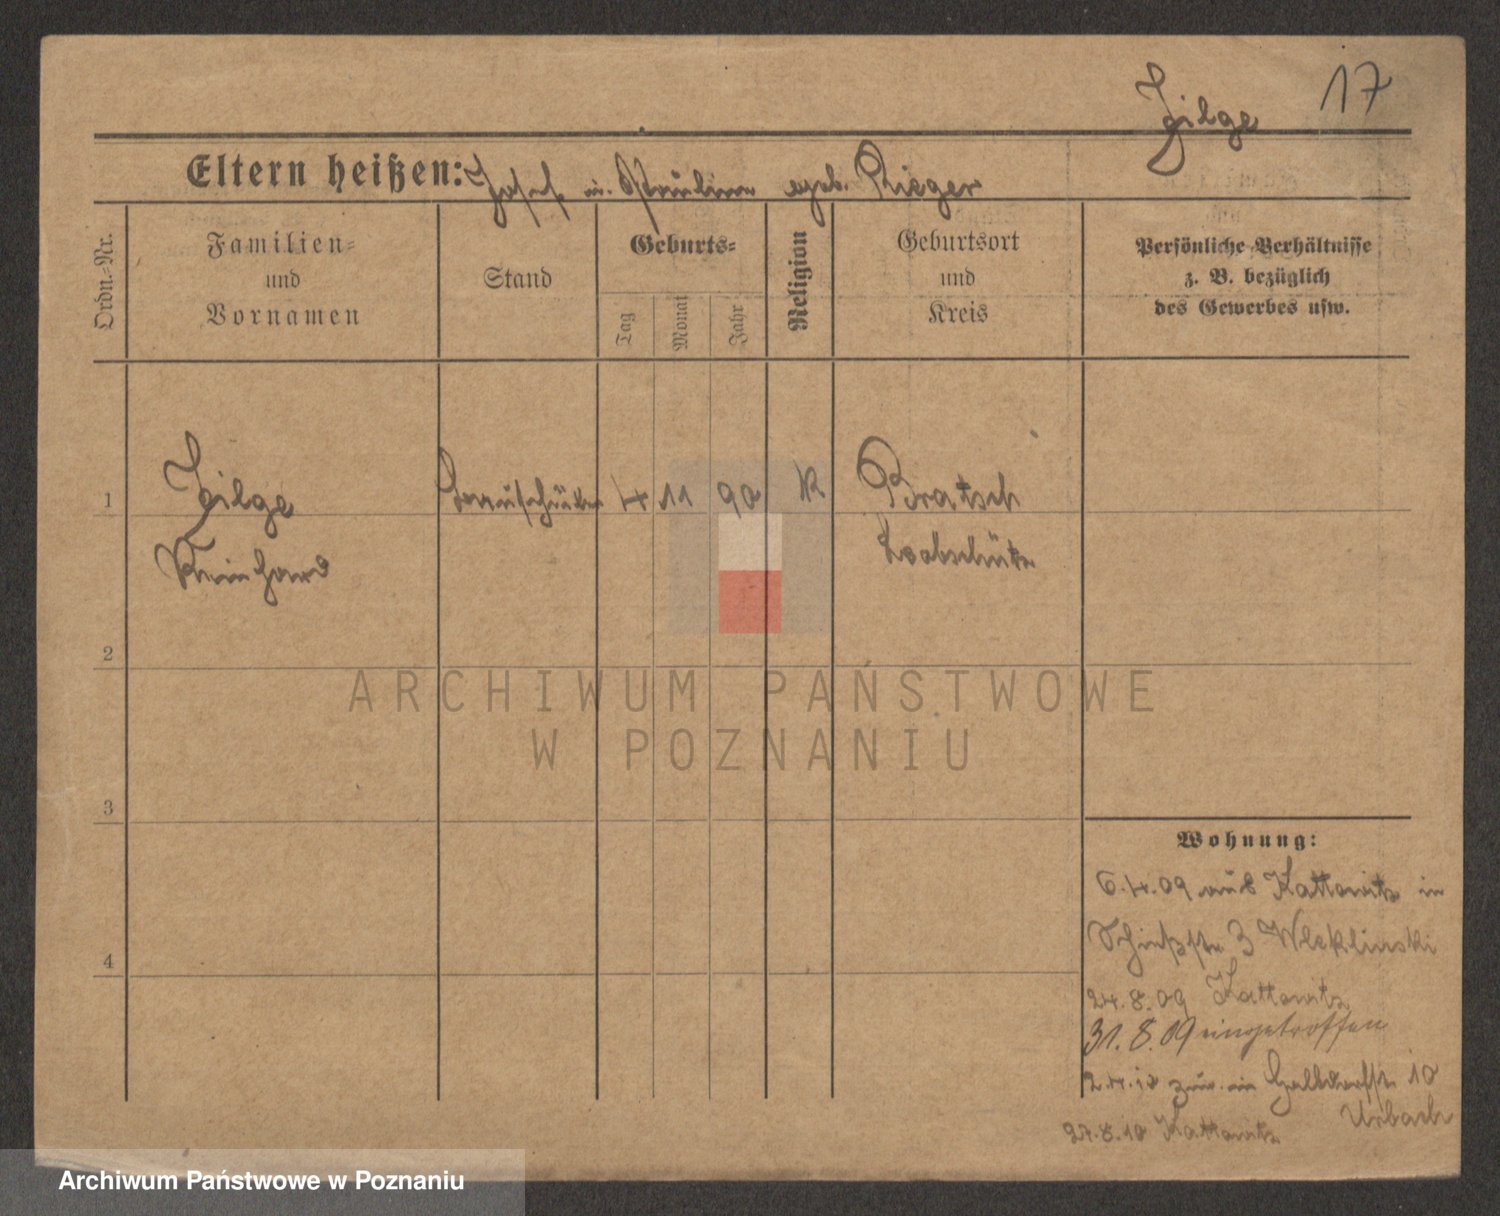 Zilge 17
Eltern heißen: Josef u. Paulina geb. Rieger
Ordn.-Nr.
Familien-
und
Vornamen
Stand
Geburts-
Tag
Monat
Jahr
Religion
Geburtsort
und
Kreis
Persönliche Verhältnisse
z. B. bezüglich
des Gewerbes usw.
1 Zilge 4 11 90 K Bratsch
Reinhard Leobschütz
2
ARCHIWUM PAŃSTWOWE
W POZNANIU
3
Wohnung:
6.4.09 aus Kattowitz in
Schießstr. 3 Wleklinski
4
24.8.09 Kattowitz
31.8.09 eingetroffen
2.4.10 zur. in 10
Urbach
27.8.10 Kattowitz
Archiwum Państwowe w Poznaniu